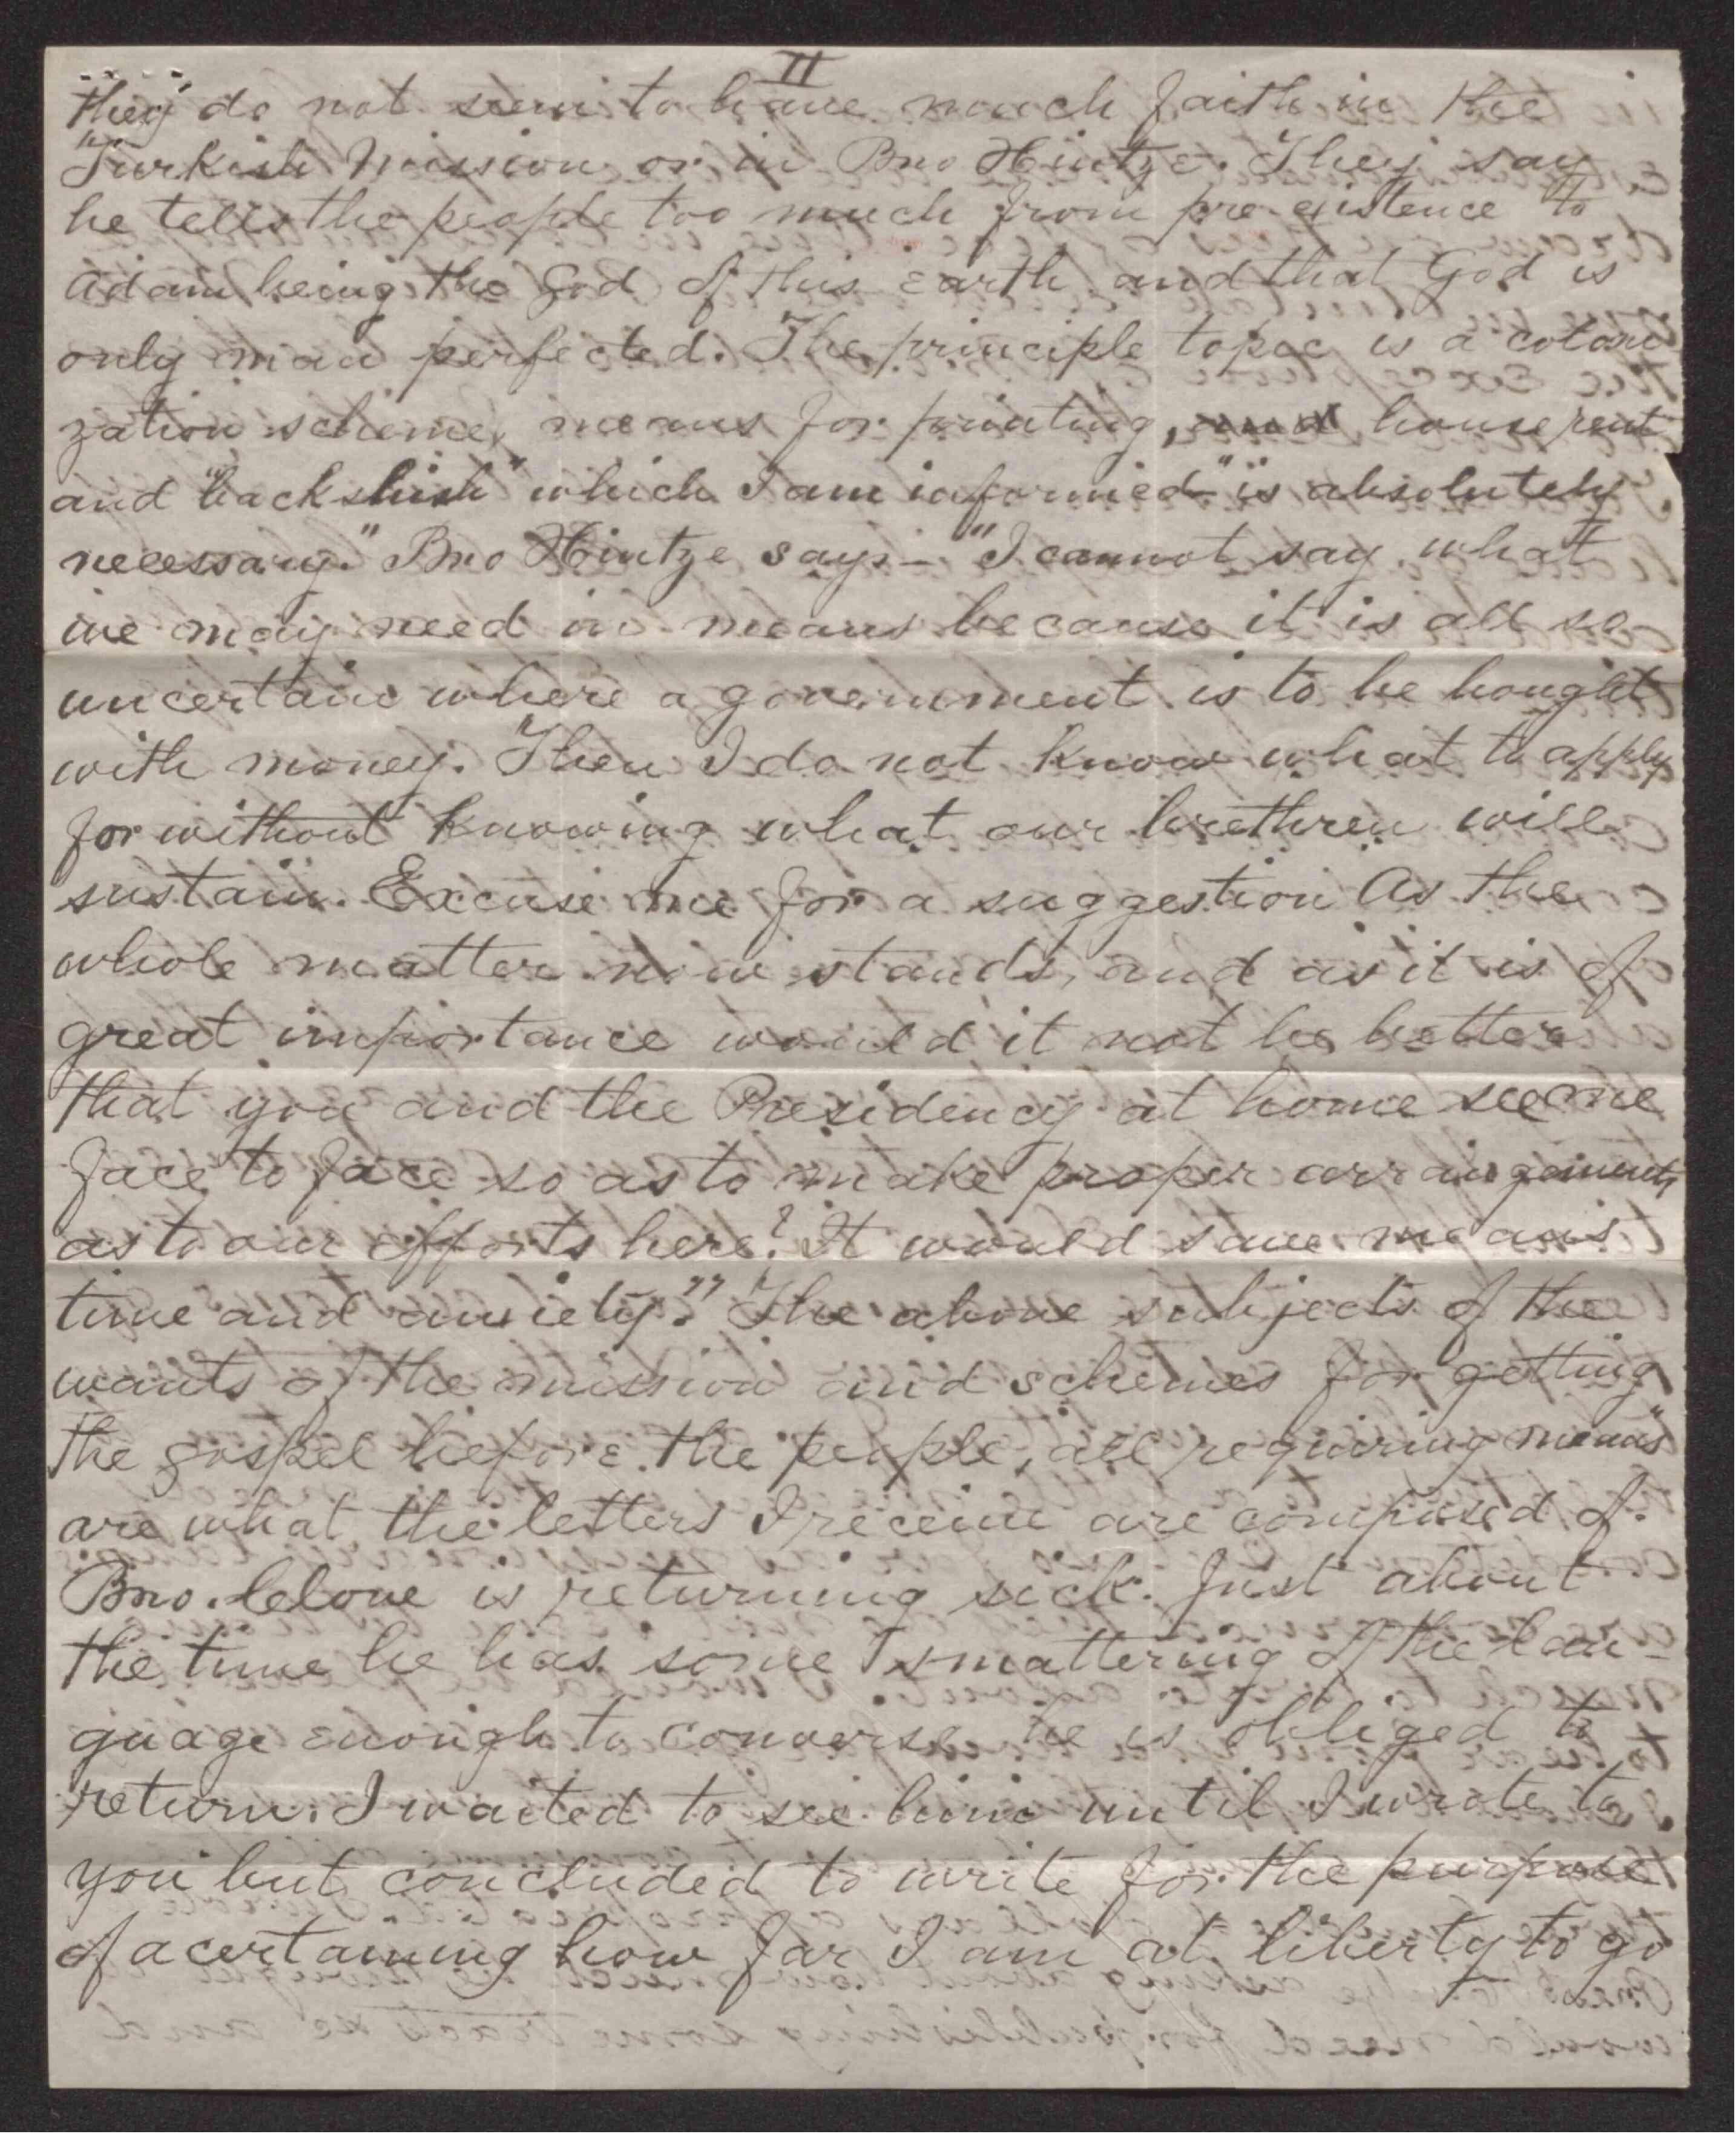 II
they do not seem to have much faith in the
Turkish Mission or in Bro Hintze. They say
he tells the people too much from pre-existence to
Adam being the God of this earth and that God is
only man perfected. The principle topic is a coloni
zation scheme, means for printing, house rent
and "backshish" which I am informed "is absolutely
necessary." Bro Hintze says - "I cannot say what
we may need in means because it is all so
uncertain where a government is to be bought
with money. Then I do not know what to apply
for without knowing what our brethren will
sustain. Excuse me for a suggestion As the
whole matter now stands, and as it is of
great importance would it not be better
that you and the Presidency at home see me
face to face so as to make proper arrangements
as to our efforts here? It would save means
time and anxiety." The above subjects of the
wants of the mission and schemes for getting
the gospel before the people, all requiring "means"
are what the letters I receive are composed of.
Bro. Clove is returning sick. Just about
the time he has some smattering of the lan-
guage enough to converse he is obliged to
return. I waited to see him until I wrote to
you but concluded to write for the purpose
of acertaining how far I am at liberty to go